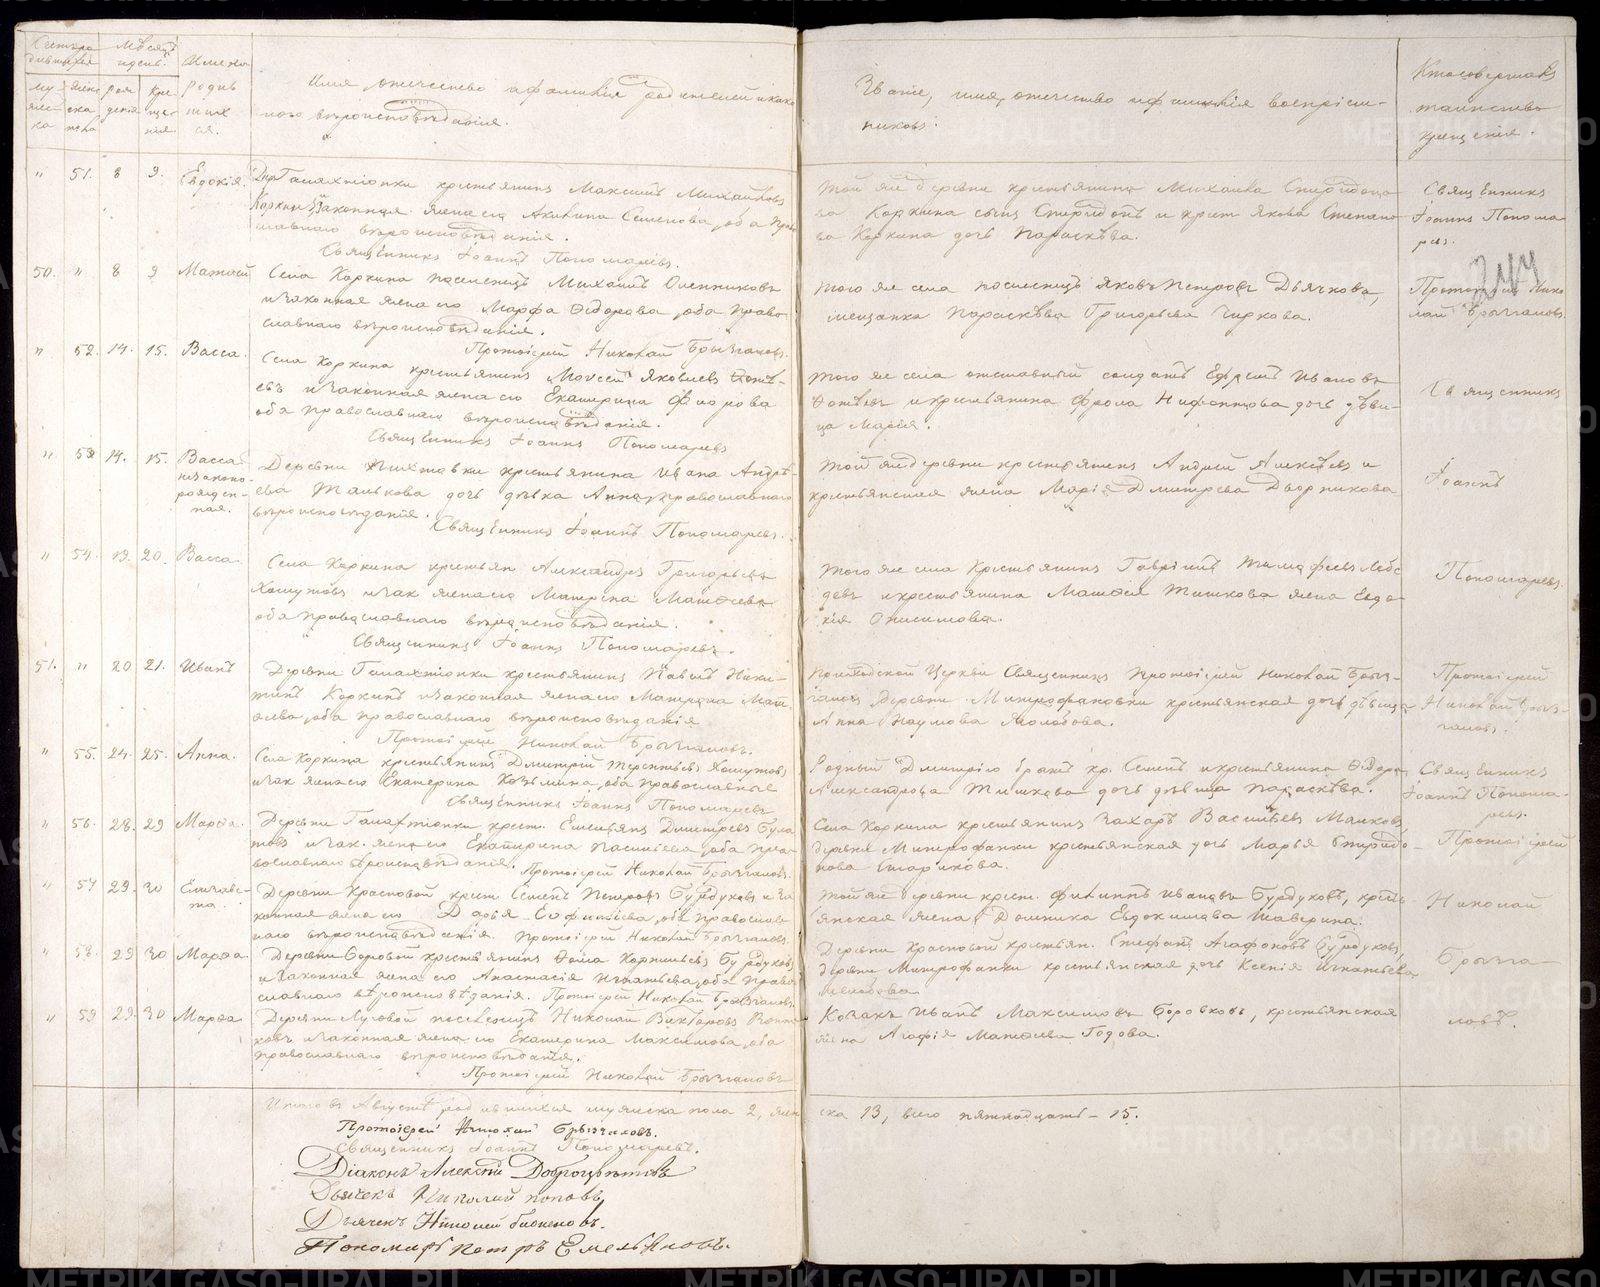 Счетъ ро
дившихся
Мѣсяцъ
и день.
Имена
родив
шихся.
муж
еска
женска
пола
рож
денія
кре
ще
нія
Имя, отечество и фамилія родителей и како
ного вѣроисповѣданія.
Званіе, имя, отечество и фамилія воспріем-
никовъ.
Кто совершалъ
таинство
крещенія.
" 51. 8 9. Евдокія.
Дер. Галяктіонки крестьянинъ Максимъ Михайловъ
Коркинъ и законная жена его Акилина Семенова, оба право
славнаго вѣроисповѣданія.
Священникъ Іоаннъ Пономаревъ.
Той же деревни крестьянина Михаила Спиридоно
ва Коркина сынъ Спиридонъ и крест. Якова Степано
ва Коркина дочь Параскева.
Священникъ
Іоаннъ Понома
ревъ.
244
50. " 8 9 Матѳей
Села Коркина поселенецъ Михаилъ Оленниковъ
и законная жена его Марфа Ѳедорова, оба право
славнаго вѣроисповѣданія.
Протоіерей Николай Брызгаловъ.
того же села поселенецъ Яковъ Петровъ Дьячкова,
мещанка Параскева Григорьева Чиркова.
Протоіерей Нико
лай Брызгаловъ.
" 52. 14. 15. Васса.
Села Коркина крестьянинъ Моисей Яковлевъ Ѳоть-
евъ и законная жена его Екатерина Фролова
оба православнаго вѣроисповѣданія.
Священникъ Іоаннъ Пономаревъ
того же села отставный солдатъ Ефремъ Ивановъ
Ѳотьевъ и крестьянина Фрола Нифонтова дочь дѣви-
ца Марія.
Священникъ
" 53 14. 15. Васса
незаконо-
рожден-
ная.
Деревни Пихтовки крестьянина Ивана Андре-
ева Телькова дочь дѣвка Анна, православнаго
вѣроисповѣданія.
Священникъ Іоаннъ Пономаревъ.
той же деревни крестьянинъ Андрей Алексѣевъ и
крестьянская жена Марія Дмитріева Дворникова
Іоаннъ
" 54. 19. 20. Васса.
Села Коркина крестьян. Александръ Григорьевъ
Хомутовъ и зак. жена его Матрена Матѳеева
оба православнаго вѣроисповѣданія.
Священникъ Іоаннъ Пономаревъ.
того же села крестьянинъ Гавріилъ Тимофеевъ Лебе
девъ и крестьянина Матѳея Тишкова жена Евдо-
кія Онисимова.
Пономаревъ.
51. " 20 21. Иванъ
Деревни Галактіонки крестьянинъ Павелъ Ники-
тинъ Коркинъ и законная жена его Матрена Мат
ѳеева, оба православнаго вѣроисповѣданія
Протоіерей Николай Брызгаловъ.
Приходской Церкви Священникъ Протоіерей Николай Брыз-
галовъ, деревни Митрофановки крестьянская дочь дѣвица
Анна Наумова Молобова.
Протоіерей
Николай Брыз-
галовъ.
" 55. 24. 25. Анна.
Села Коркина крестьянинъ Дмитрій Терентьевъ Хомутовъ
и зак. жена его Екатерина Козьмина, оба православные
Священникъ Іоаннъ Пономаревъ
Родный Дмитрію братъ кр. Семенъ и крестьянина Ѳедора
Александрова Тишкова дочь дѣвица Параскева.
Священникъ
Іоаннъ Понома-
ревъ.
" 56. 28. 29 Марѳа.
Деревни Галактіонки крест. Емельянъ Дмитріевъ Була
товъ и зак. жена его Екатерина Васильева, оба пра-
вославнаго вѣроисповѣданія. Протоіерей Николай Брызгаловъ.
Села Коркина крестьянинъ Захаръ Васильевъ Малковъ
деревни Митрофанки крестьянская дочь Марья Спиридо-
нова Старикова.
Протоіерей
" 57 29. 30 Елизаве-
та.
Деревни Красновой крест. Семенъ Петровъ Бурдуковъ и за
конная жена его Дарья Евфимьева, оба православ
наго вѣроисповѣданія. Протоіерей Николай Брызгаловъ.
той же деревни крест. Филиппъ Ивановъ Бурдуковъ, кресть-
янская жена Домника Евдокимова Шаверина.
Николай
" 58. 29 30 Марѳа.
Деревни Боровой крестьянинъ Ѳома Корнильевъ Бурдуковъ
и законная жена его Анастасія Игнатьева, оба право
славнаго вѣроисповѣданія. Протоіерей Николай Брызгаловъ.
Деревни Красновой крестьян. Стефанъ Агафоновъ Бурдуковъ,
деревни Митрофанки крестьянская дочь Ксенія Игнатьева
Молобова.
Брызга-
" 59 29. 30 Марѳа.
Деревни Луговой поселенецъ Николай Викторовъ Войт
ковъ и законная жена его Екатерина Максимова, оба
православнаго вѣроисповѣданія.
Протоіерей Николай Брызгаловъ
Козакъ Иванъ Максимовъ Боровковъ, крестьянская
жена Агафія Матѳеева Годова.
ловъ.
Итого въ Августѣ родившихся мужеска пола 2, жен
ска 13, всего пятнадцать - 15.
Протоіерей Николай Брызгаловъ.
Священникъ Іоаннъ Пономаревъ.
Діаконъ Алексѣй Доброцвѣтовъ
Дьячекъ Николай Поповъ
Дьячекъ Николай
Пономарь Петръ Емельяновъ.
METRIKI.GASO-URAL.RU